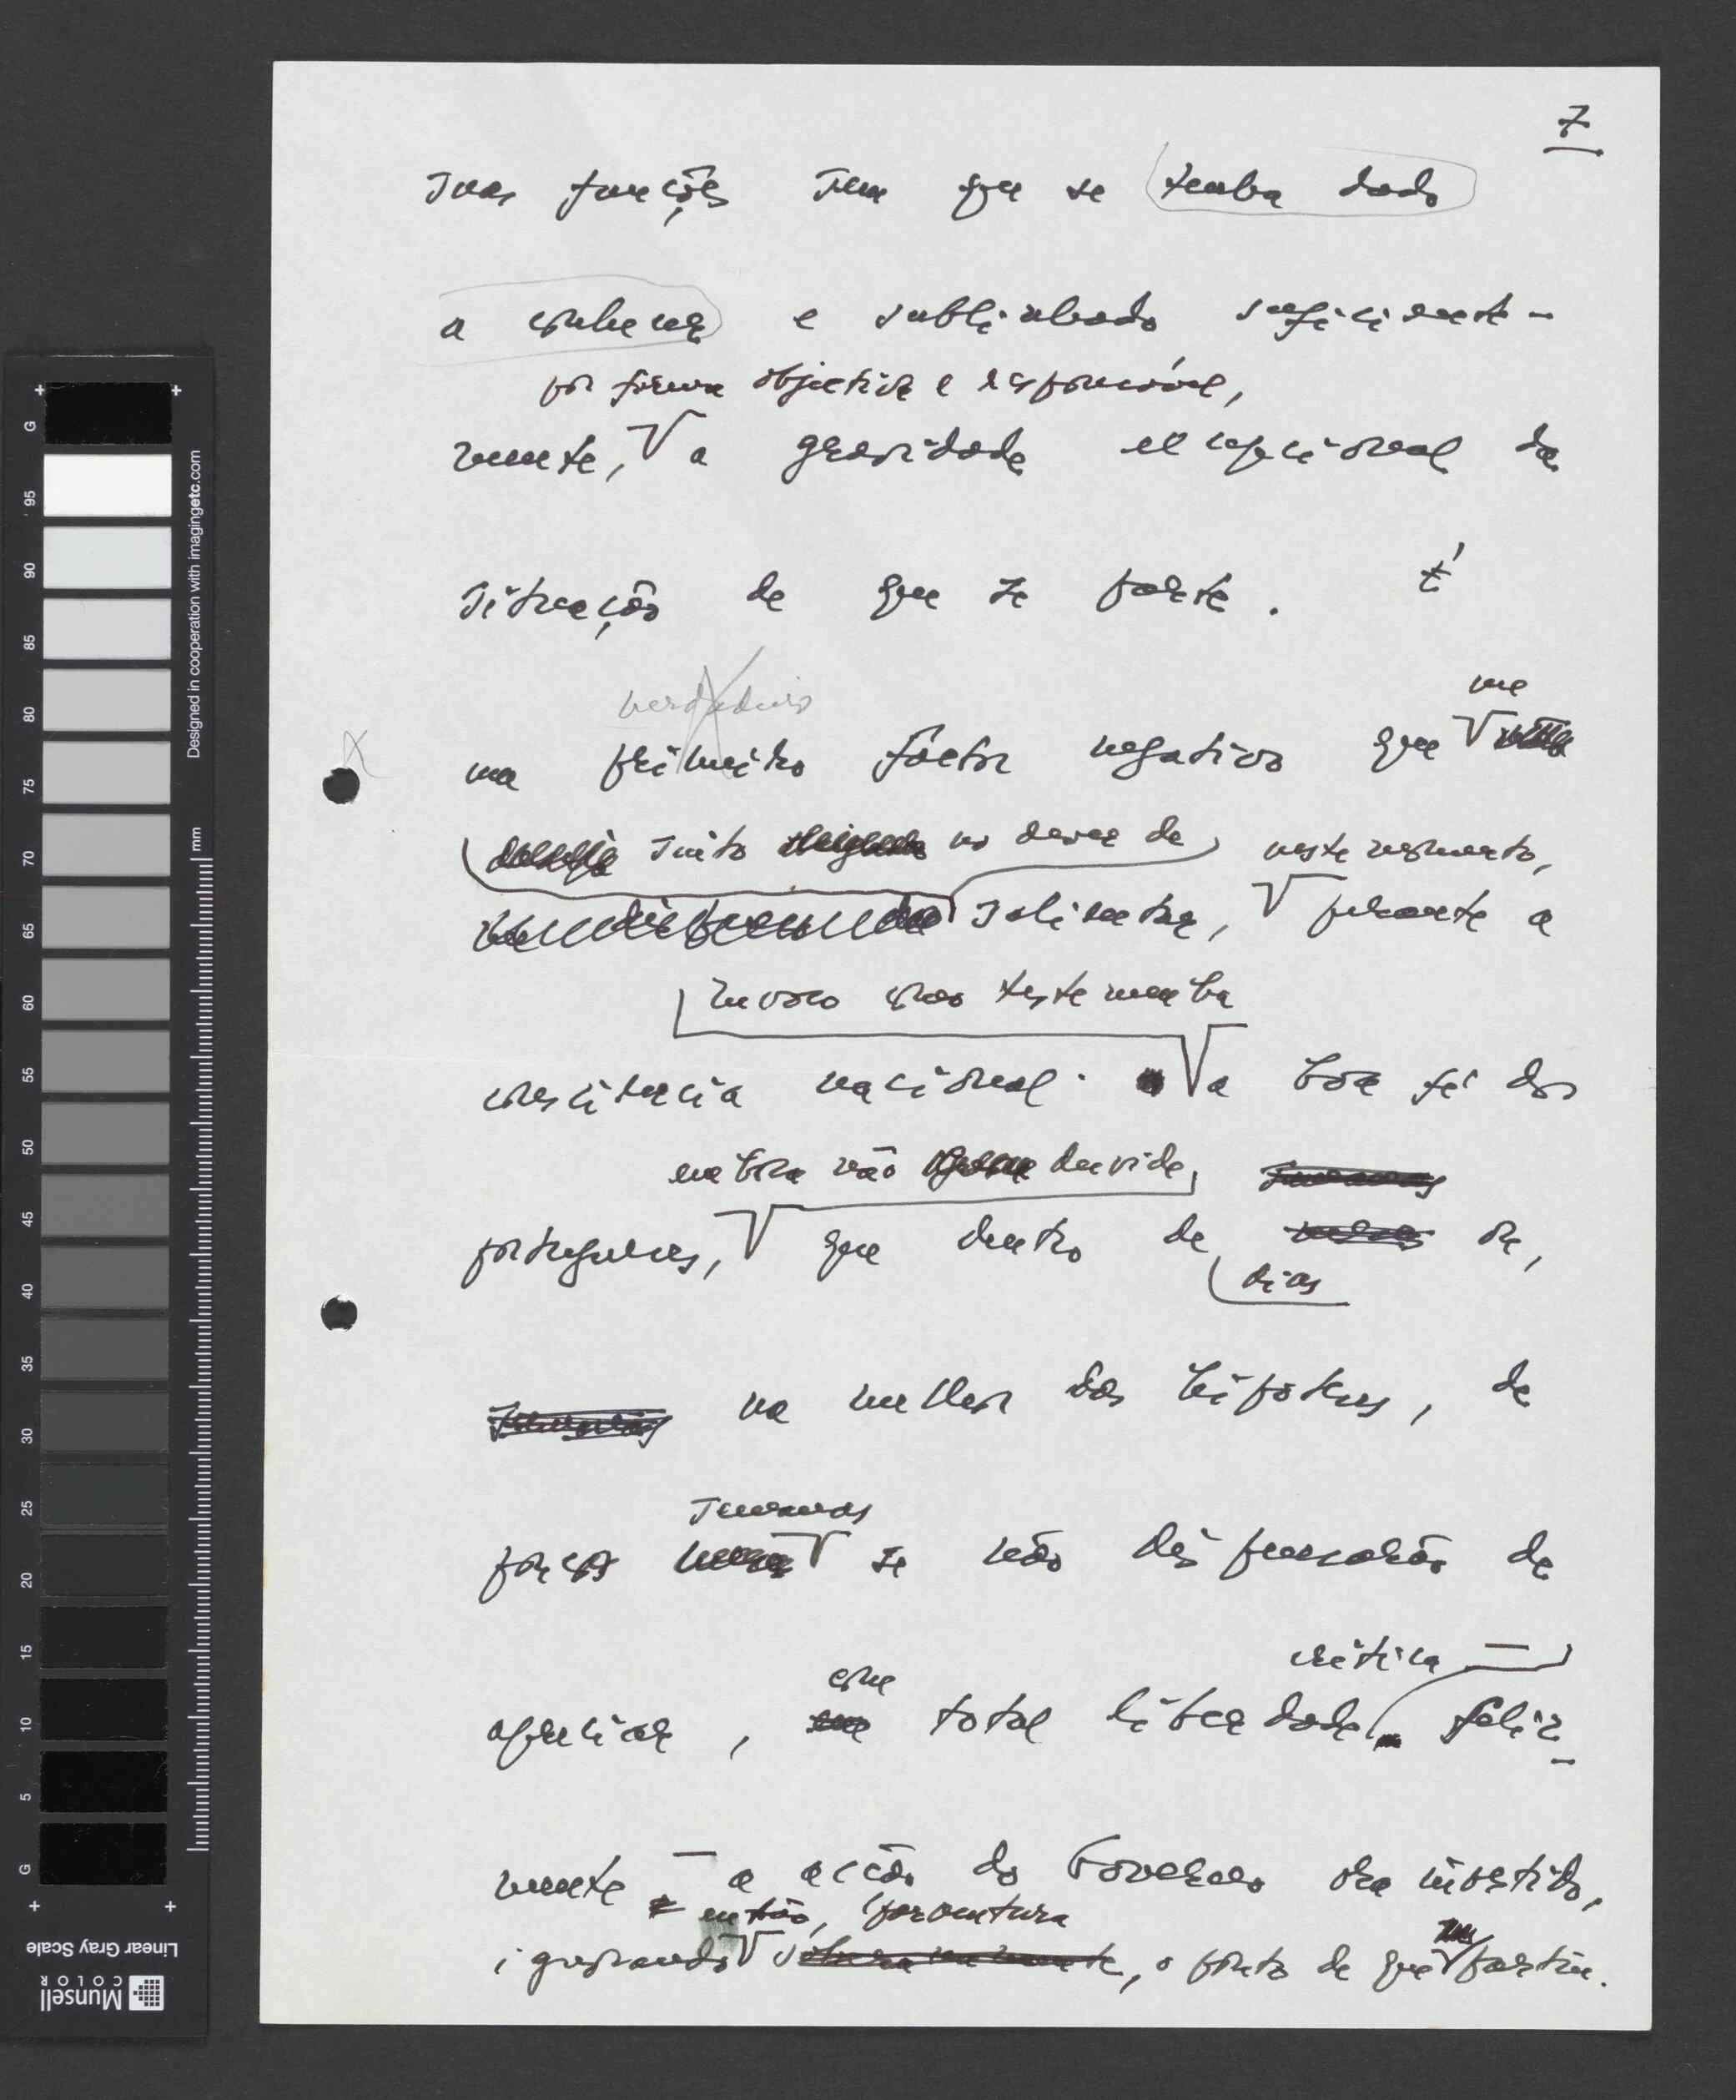 7
suas funções sem que se tenha dado
a conhecer e sublinhado suficiente-
por forma objectiva e responsável,
mente, a gravidade excepcional da
situação de que se parte. É
verdadeiro
me
um primeiro factor negativo que
sinto no dever de neste momento,
salientar, perante a
Invoco como testemunha
consciência nacional. a boa fé dos
embora não duvide, semanas
portugueses, que dentro de meses ou,
dias
semanas na melhor das hipóteses, de
semanas
poucas se não disporão de
crítica —
com
apreciar, em total liberdade feliz-
mente — a acção do Governo ora investido,
e então, porventura
nos
ignorando, o ponto de que partiu.
G 95 90 85 80 75 70 65 60 55 50 45 40 35 30 25 20 15 10 5 G
mm
Designed in cooperation with imagingetc.com
Linear Gray Scale
Munsell
COLOR